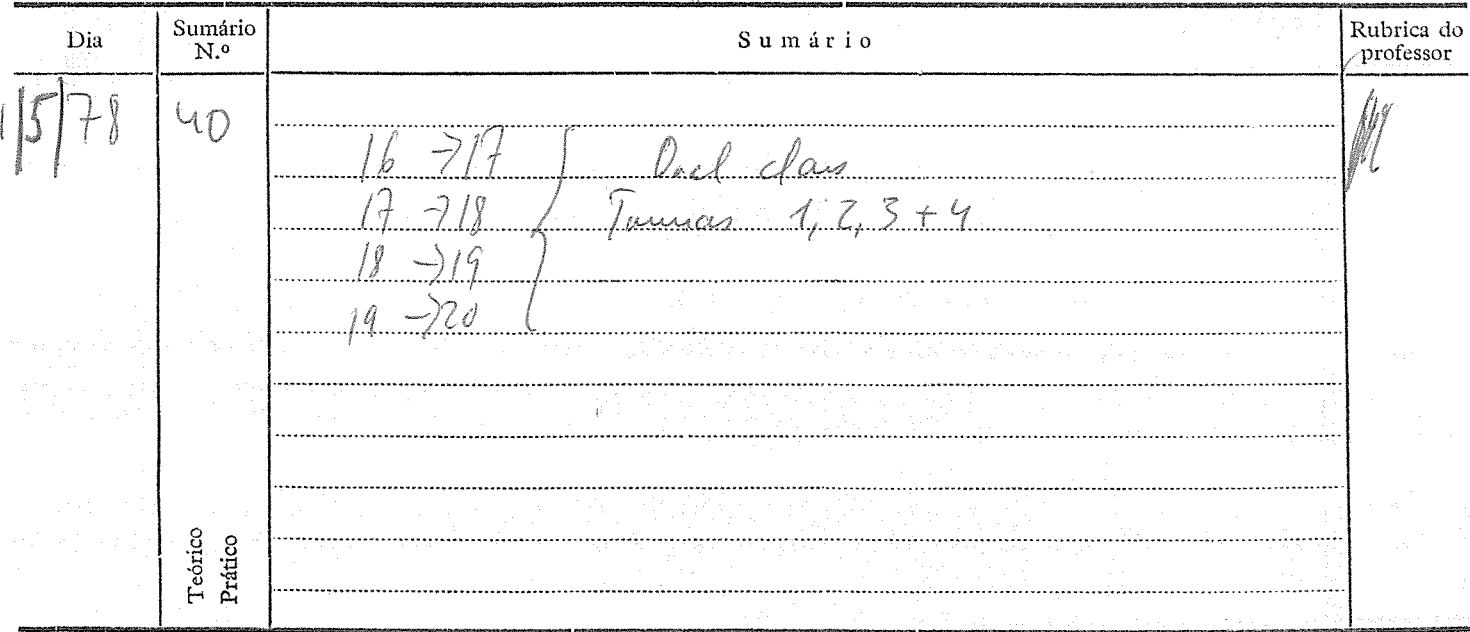 Dia Sumário N.º Sumário Rubrica do professor
1/5/78 40
16 → 17 Oral class
17 → 18 Turmas 1, 2, 3 + 4
18 → 19
19 → 20
Teórico
Prático